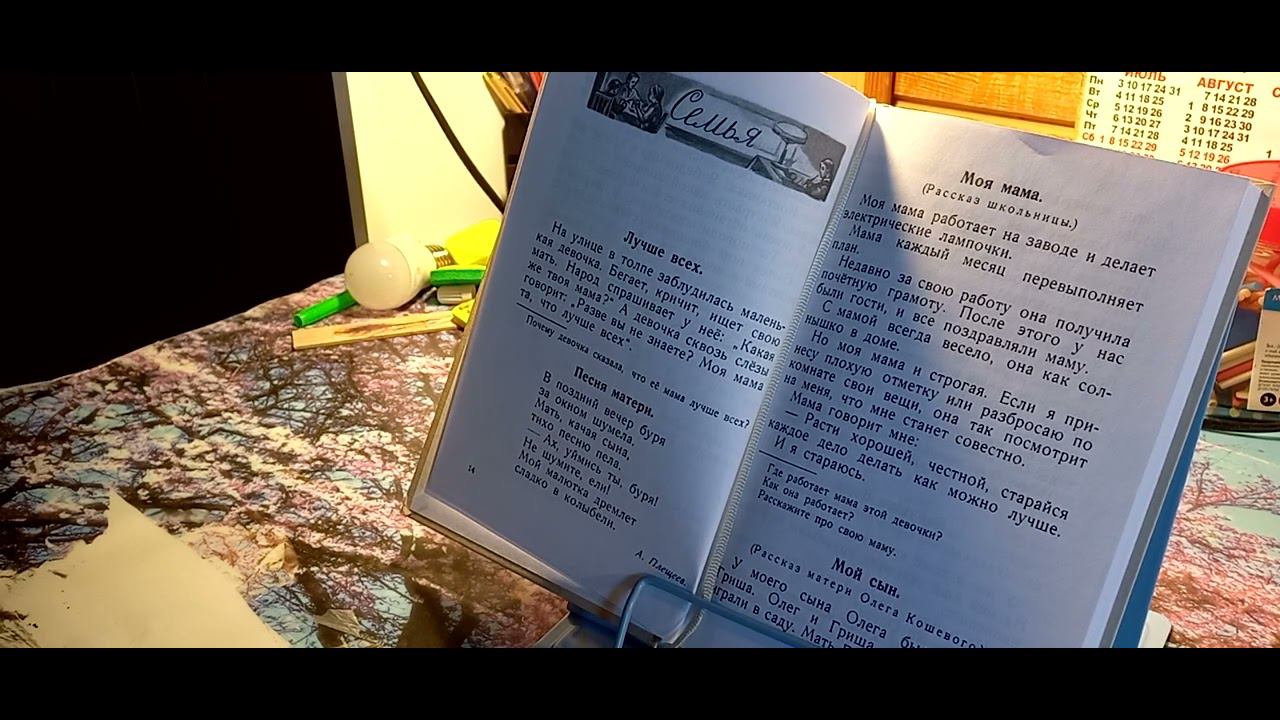 Семья
Лучше всех.
На улице в толпе заблудилась малень-
кая девочка. Бегает, кричит, ищет свою
мать. Народ спрашивает у неё: „Какая
же твоя мама?" А девочка сквозь слёзы
говорит: „Разве вы не знаете? Моя мама
та, что лучше всех".
Почему девочка сказала, что её мама лучше всех?
Песня матери.
В поздний вечер буря
за окном шумела.
Мать, качая сына,
тихо песню пела.
— Ах, уймись ты, буря!
Не шумите, ели!
Мой малютка дремлет
сладко в колыбели.
А. Плещеев.
14
Моя мама.
(Рассказ школьницы.)
Моя мама работает на заводе и делает
электрические лампочки.
Мама каждый месяц перевыполняет
план.
Недавно за свою работу она получила
почётную грамоту. После этого у нас
были гости, и все поздравляли маму.
С мамой всегда весело, она как сол-
нышко в доме.
Но моя мама и строгая. Если я при-
несу плохую отметку или разбросаю по
комнате свои вещи, она так посмотрит
на меня, что мне станет совестно.
Мама говорит мне:
— Расти хорошей, честной, старайся
каждое дело делать как можно лучше.
И я стараюсь.
Где работает мама этой девочки?
Как она работает?
Расскажите про свою маму.
Мой сын.
(Рассказ матери Олега Кошевого.)
У моего сына Олега
Гриша. Олег и Гриша
играли в саду. Мать
ИЮЛЬ
Пн 3 10 17 24 31
Вт 4 11 18 25
Ср 5 12 19 26
Чт 6 13 20 27
Пт 7 14 21 28
Сб 1 8 15 22 29
АВГУСТ
7 14 21 28
1 8 15 22 29
2 9 16 23 30
3 10 17 24 31
4 11 18 25
5 12 19 26
3+